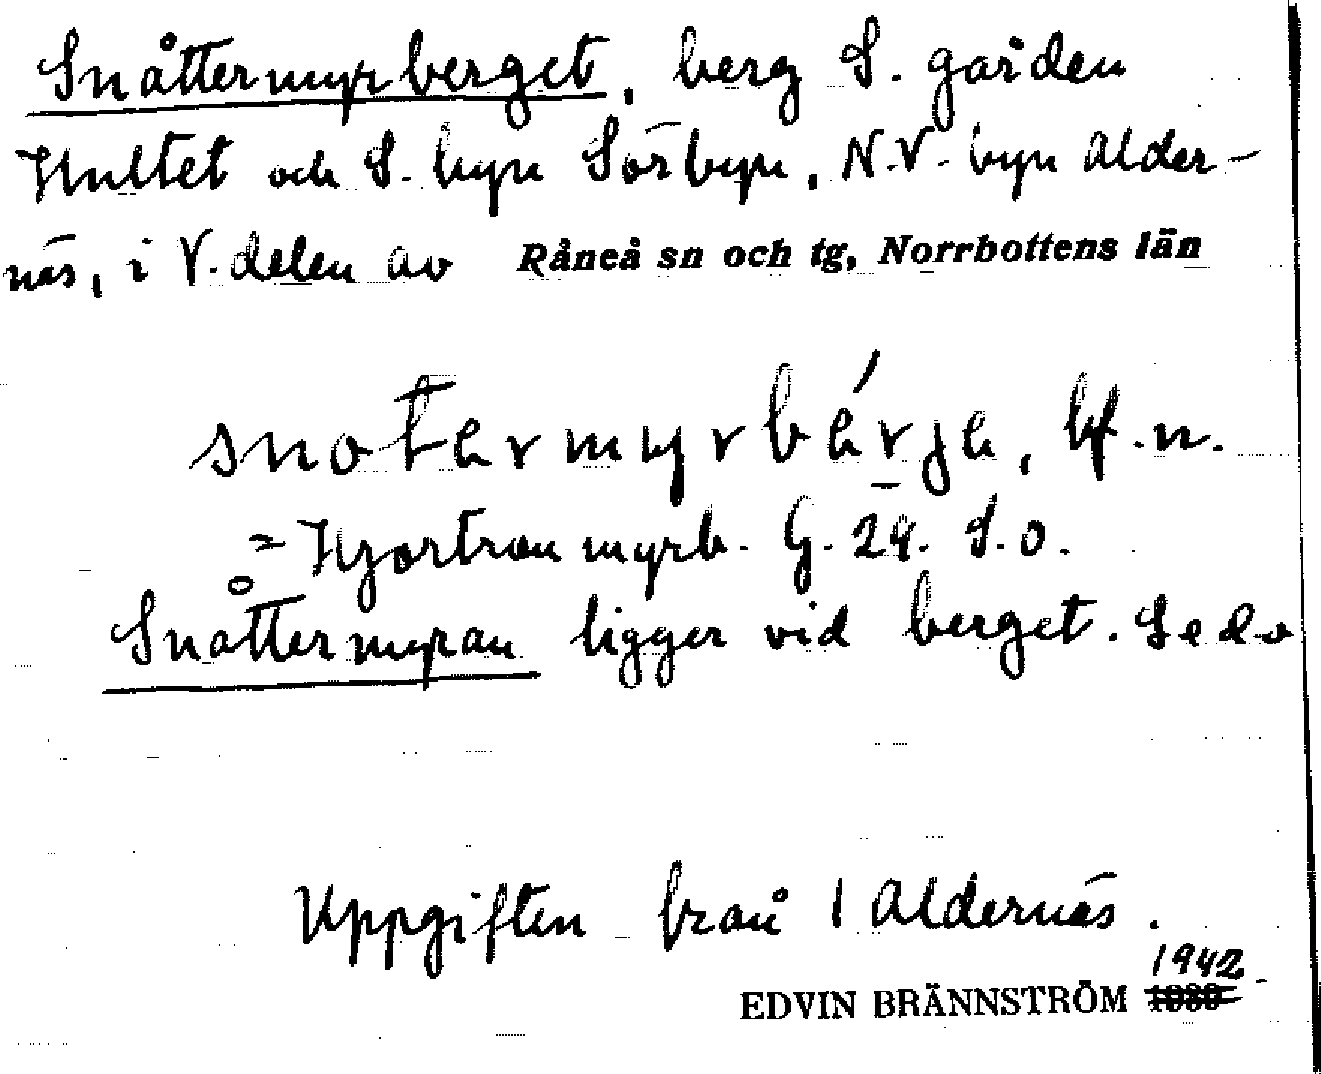 Snåttermyrberget, berg S. gården
Hultet och S. byn Sörbyn, N.V. byn Alder-
näs, i V. delen av Råneå sn och tg, Norrbottens län
snotermyrbérje, bf. n.
= Hjortronmyrb. G. 24. S.O.
Snåttermyran ligger vid berget. Se do
Uppgiften från 1 Aldernäs.
1942
EDVIN BRÄNNSTRÖM 1939